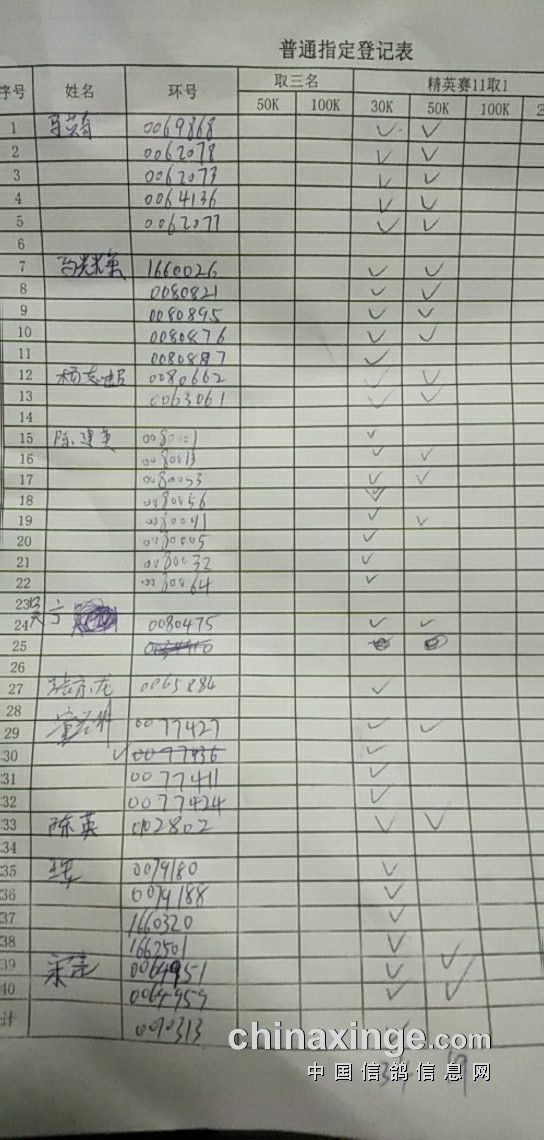 普通指定登记表
序号 姓名 环号 取三名 精英赛11取1
50K 100K 30K 50K 100K 2
1 0069868 ✓ ✓
2 0062078 ✓ ✓
3 0062073 ✓ ✓
4 0064136 ✓ ✓
5 0062077 ✓ ✓
6
7 1660026 ✓ ✓
8 0080821 ✓ ✓
9 0080895 ✓ ✓
10 0080876 ✓ ✓
11 0080887 ✓
12 0080662 ✓ ✓
13 0063061 ✓ ✓
14
15 陈建英 0080001 ✓
16 0080013 ✓ ✓
17 0080053 ✓ ✓
18 0080056 ✓
19 0080041 ✓ ✓
20 0080005 ✓
21 0080032 ✓
22 0080064 ✓
23
24 0080475 ✓ ✓
25
26
27 0065884 ✓
28
29 0077427 ✓ ✓
30 ✓ 0077436 ✓
31 0077411 ✓
32 0077424 ✓
33 陈英 0102802 ✓ ✓
34
35 0079180 ✓
36 0079188 ✓
37 1660320 ✓
38 1662501 ✓
39 0064951 ✓ ✓
40 0064959 ✓ ✓
计 0070313
chinaxinge.com
中国信鸽信息网
34 19